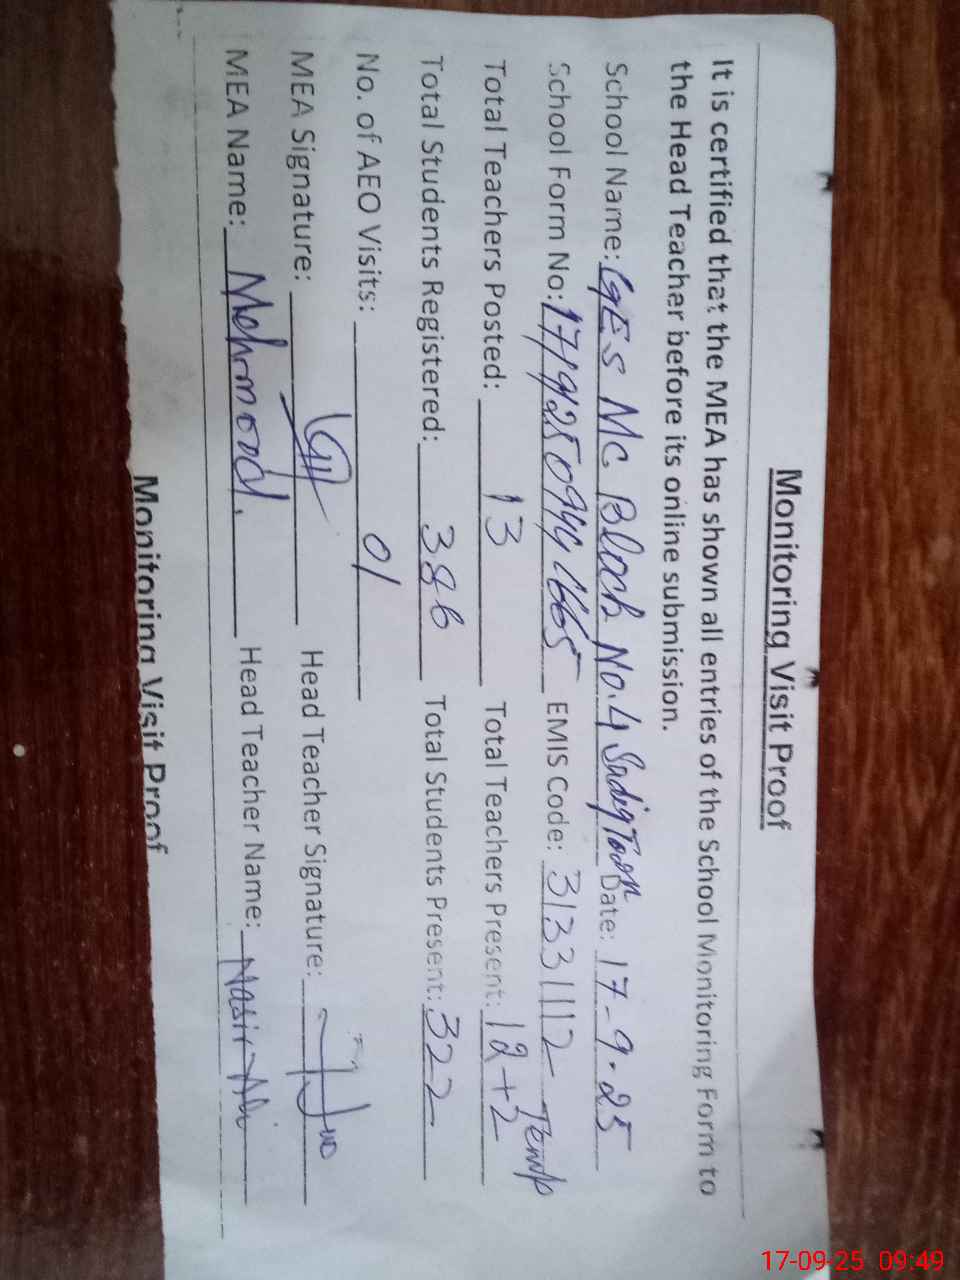 Monitoring Visit Proof
It is certified that the MEA has shown all entries of the School Monitoring Form to
the Head Teacher before its online submission.
School Name: GES MC Block No.4 Sadiq Town Date: 17-9-25
School Form No: EMIS Code: 31331112
Total Teachers Posted: 13 Total Teachers Present: 12+2 Temp
Total Students Registered: 386 Total Students Present: 322
No. of AEO Visits: 01
MEA Signature: Head Teacher Signature:
MEA Name: Mehmood. Head Teacher Name: Nasir Ali
Monitoring Visit Proof
17-09-25 09:49